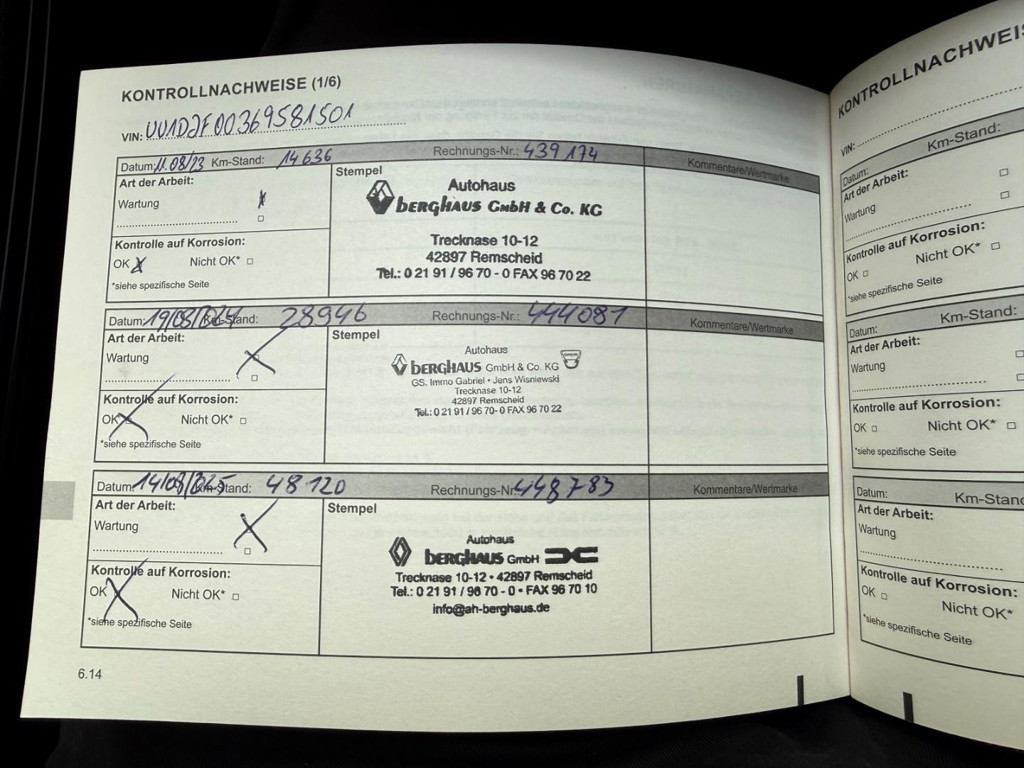 KONTROLLNACHWEISE (1/6)
VIN: UU1DJF00369581501
Datum: 11.08/23 Km-Stand: 14636 Rechnungs-Nr.: 439174 Kommentare/Wertmarke
Art der Arbeit:
Wartung
Kontrolle auf Korrosion:
OK Nicht OK*
*siehe spezifische Seite
Stempel
Autohaus
BERGHAUS GMBH & Co. KG
Trecknase 10-12
42897 Remscheid
Tel.: 0 21 91 / 96 70 - 0 FAX 96 70 22
Datum: 19/08/2024 Km-Stand: 28946 Rechnungs-Nr.: 444081 Kommentare/Wertmarke
Art der Arbeit:
Wartung
Kontrolle auf Korrosion:
OK Nicht OK*
*siehe spezifische Seite
Stempel
Autohaus
BERGHAUS GMBH & Co. KG
GS. Immo Gabriel • Jens Wisniewski
Trecknase 10-12
42897 Remscheid
Tel.: 0 21 91 / 96 70- 0 FAX 96 70 22
Datum: 14/08/2025 Km-Stand: 48120 Rechnungs-Nr.: 448783 Kommentare/Wertmarke
Art der Arbeit:
Wartung
Kontrolle auf Korrosion:
OK Nicht OK*
*siehe spezifische Seite
Stempel
Autohaus
BERGHAUS GMBH
Trecknase 10-12 • 42897 Remscheid
Tel.: 0 21 91 / 96 70 - 0 • FAX 96 70 10
info@ah-berghaus.de
6.14
VIN:
Datum: Km-Stand:
Art der Arbeit:
Wartung
Kontrolle auf Korrosion:
OK Nicht OK*
*siehe spezifische Seite
Datum: Km-Stand:
Art der Arbeit:
Wartung
Kontrolle auf Korrosion:
OK Nicht OK*
*siehe spezifische Seite
Datum: Km-Stand
Art der Arbeit:
Wartung
Kontrolle auf Korrosion:
OK Nicht OK*
*siehe spezifische Seite